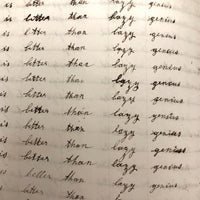 is better than lazy genius
is better than lazy genius
is better than lazy genius
is better than lazy genius
is better than lazy genius
is better than lazy genius
is better than lazy genius
is better than lazy genius
is better than lazy genius
is better than lazy genius
is better than lazy genius
is better than lazy genius